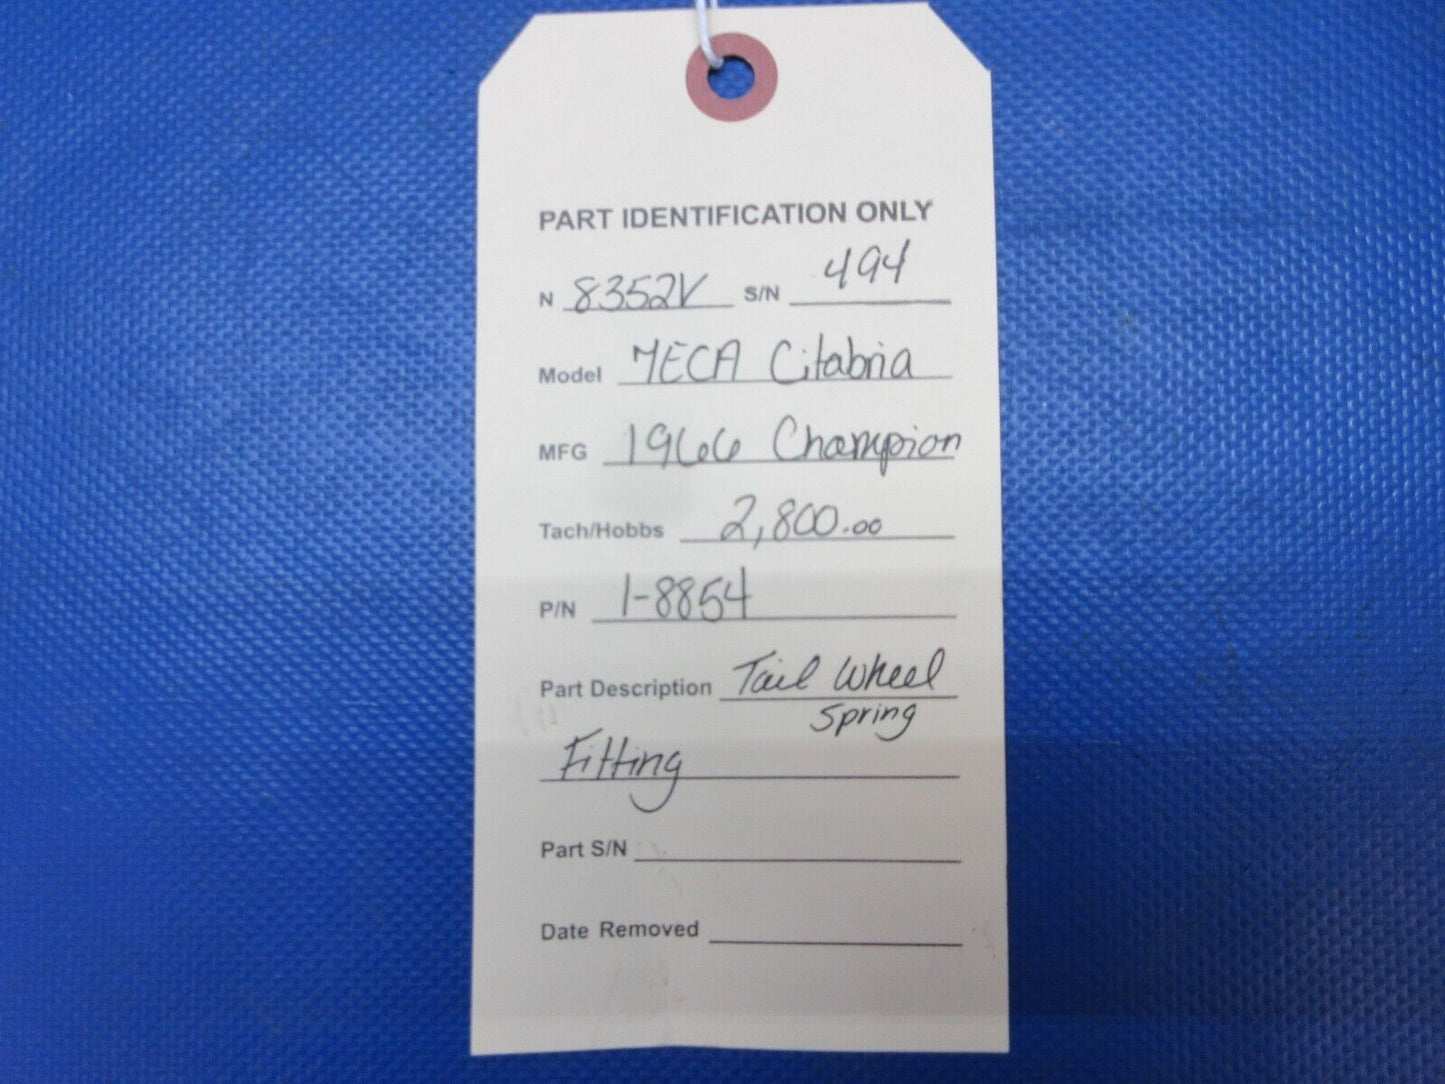 PART IDENTIFICATION ONLY
N 8352V S/N 494
Model 7ECA Citabria
MFG 1966 Champion
Tach/Hobbs 2,800.00
P/N 1-8854
Part Description Tail Wheel
Spring
Fitting
Part S/N
Date Removed